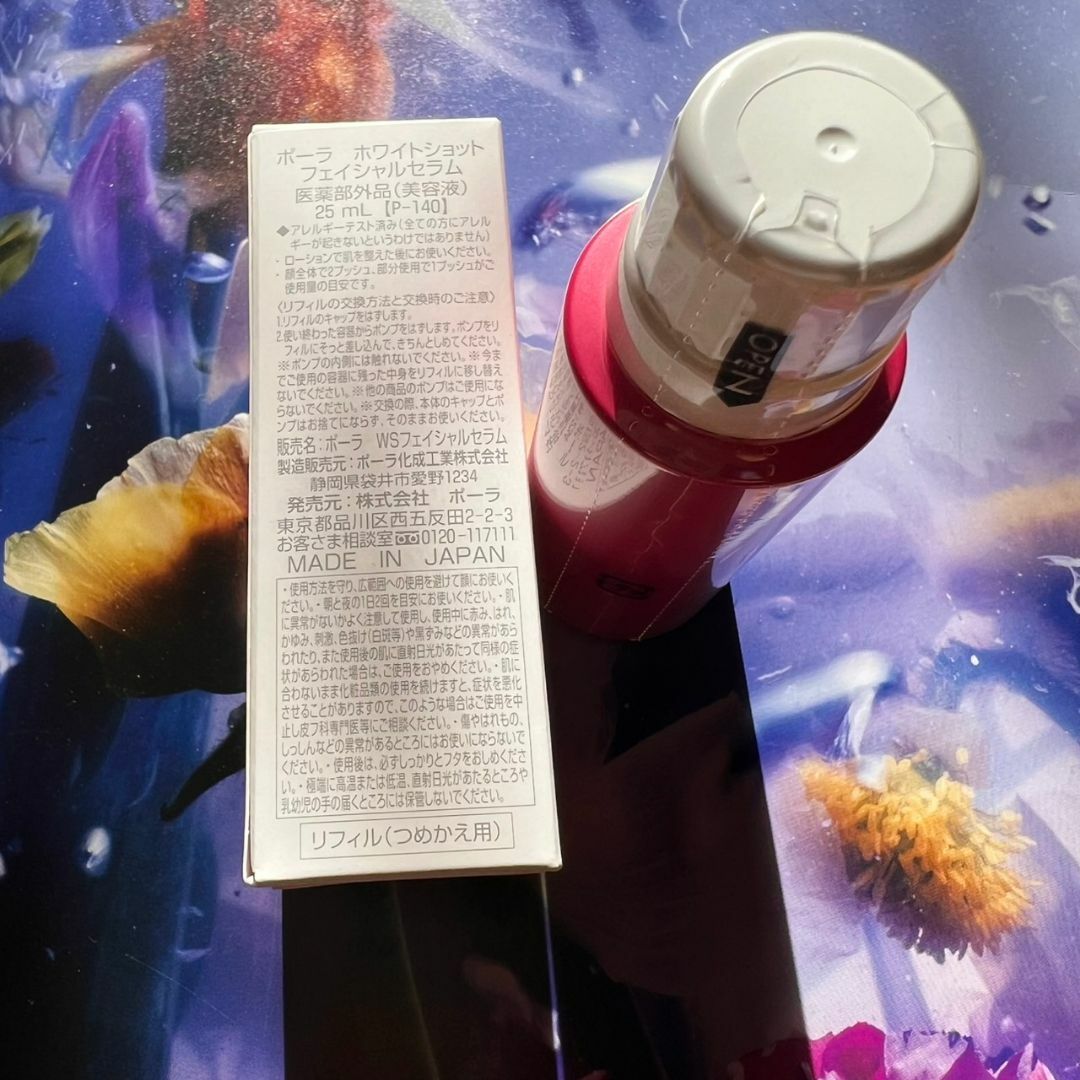 ポーラ ホワイトショット
フェイシャルセラム
医薬部外品(美容液)
25 mL 【P-140】
◆アレルギーテスト済み(全ての方にアレル
ギーが起きないというわけではありません)
・ローションで肌を整えた後にお使いください。
・顔全体で2プッシュ、部分使用で1プッシュがご
使用量の目安です。
〈リフィルの交換方法と交換時のご注意〉
1.リフィルのキャップをはずします。
2.使い終わった容器からポンプをはずします。ポンプをリ
フィルにそっと差し込んで、きちんとしめてください。
※ポンプの内側には触れないでください。※今ま
でご使用の容器に残った中身をリフィルに移し替え
ないでください。※他の商品のポンプはご使用にな
らないでください。※交換の際、本体のキャップとポ
ンプはお捨てにならず、そのままお使いください。
販売名:ポーラ WSフェイシャルセラム
製造販売元:ポーラ化成工業株式会社
静岡県袋井市愛野1234
発売元:株式会社 ポーラ
東京都品川区西五反田2-2-3
お客さま相談室 0120-117111
MADE IN JAPAN
・使用方法を守り、広範囲への使用を避けて顔にお使いく
ださい。・朝と夜の1日2回を目安にお使いください。・肌
に異常がないかよく注意して使用し、使用中に赤み、はれ、
かゆみ、刺激、色抜け(白斑等)や黒ずみなどの異常があら
われたり、また使用後の肌に直射日光があたって同様の症
状があらわれた場合は、ご使用をおやめください。・肌に
合わないまま化粧品類の使用を続けますと、症状を悪化
させることがありますので、このような場合はご使用を中
止し皮フ科専門医等にご相談ください。・傷やはれもの、
しっしんなどの異常があるところにはお使いにならないで
ください。・使用後は、必ずしっかりとフタをおしめくださ
い。・極端に高温または低温、直射日光があたるところや
乳幼児の手の届くところには保管しないでください。
リフィル(つめかえ用)
OPEN